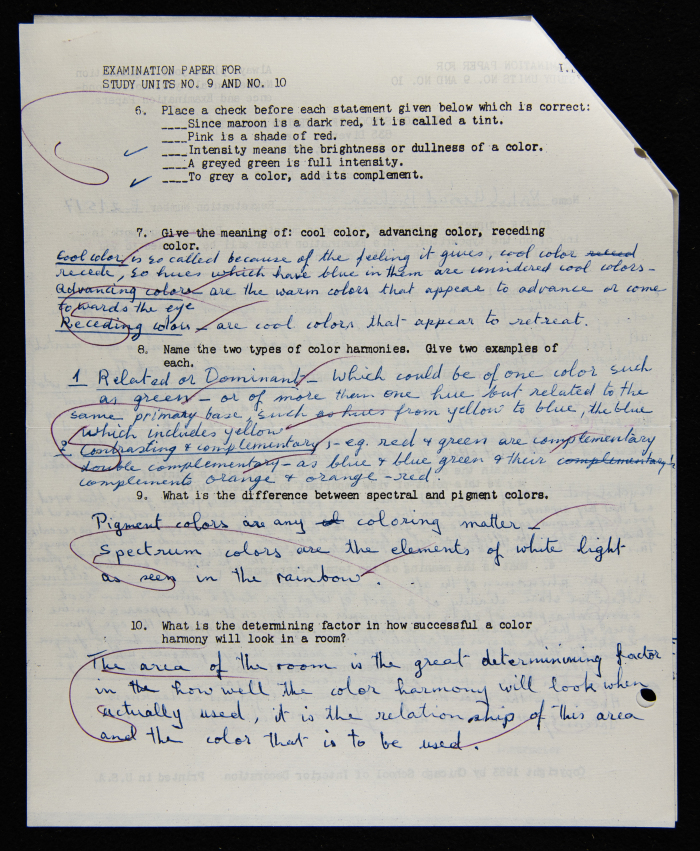 EXAMINATION PAPER FOR
STUDY UNITS NO. 9 AND NO. 10
6. Place a check before each statement given below which is correct:
____Since maroon is a dark red, it is called a tint.
____Pink is a shade of red.
✓ ____Intensity means the brightness or dullness of a color.
____A greyed green is full intensity.
✓ ____To grey a color, add its complement.
7. Give the meaning of: cool color, advancing color, receding
color.
Cool color is so called because of the feeling it gives, cool color
recede, so hues which have blue in them are considered cool colors -
Advancing colors - are the warm colors that appear to advance or come
towards the eye
Receding colors - are cool colors that appear to retreat.
8. Name the two types of color harmonies. Give two examples of
each.
1 Related or Dominant - Which could be of one color such
as green - or of more than one hue but related to the
same primary base, such as hues from yellow to blue, the blue
which includes yellow
2. Contrasting & complementary; - eg. red & green are complementary
double complementary - as blue & blue green & their complementary
compliments orange & orange - red.
9. What is the difference between spectral and pigment colors.
Pigment colors are any of coloring matter -
Spectrum colors are the elements of white light
as seen in the rainbow.
10. What is the determining factor in how successful a color
harmony will look in a room?
The area of the room is the great determinining factor
in the how well the color harmony will look when
actually used, it is the relationship of this area
and the color that is to be used.